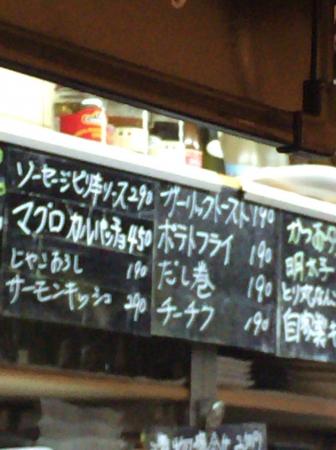 ソーセージピリ辛ソース290
マグロカルパッチョ450
じゃこおろし 190
サーモンキッシュ 290
ガーリックトースト190
ポテトフライ 190
だし巻 190
チーチク 190
かつお
明太
自家製